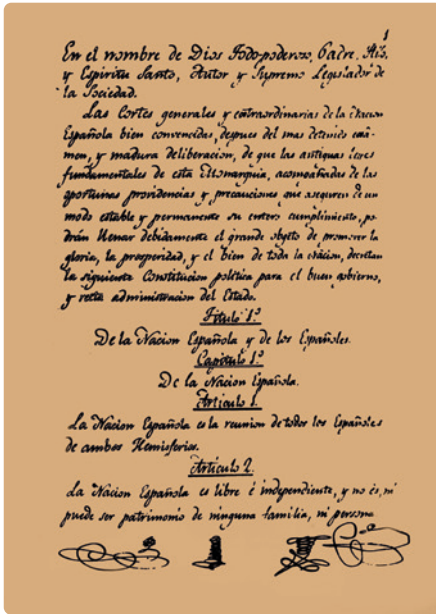 1
En el nombre de Dios Todo-poderoso, Padre, Hijo,
y Espiritu Santo, Autor y Supremo Legislador de
la Sociedad.
Las Cortes generales y extraordinarias de la Nacion
Española bien convencidas, despues del mas detenido exâ-
men, y madura deliberacion, de que las antiguas leyes
fundamentales de esta Monarquia, acompañadas de las
oportunas providencias y precauciones, que aseguren de un
modo estable y permanente su entero cumplimiento, po-
drán llenar debidamente el grande objeto de promover la
gloria, la prosperidad, y el bien de toda la nacion, decretan
la siguiente Constitucion politica para el buen gobierno,
y recta administracion del Estado.
Titulo 1.º
De la Nacion Española y de los Españoles.
Capitulo 1.º
De la Nacion Española.
Articulo 1.
La Nacion Española es la reunion de todos los Españoles
de ambos Hemisferios.
Articulo 2.
La Nacion Española es libre é independiente, y no es, ni
puede ser patrimonio de ninguna familia, ni persona